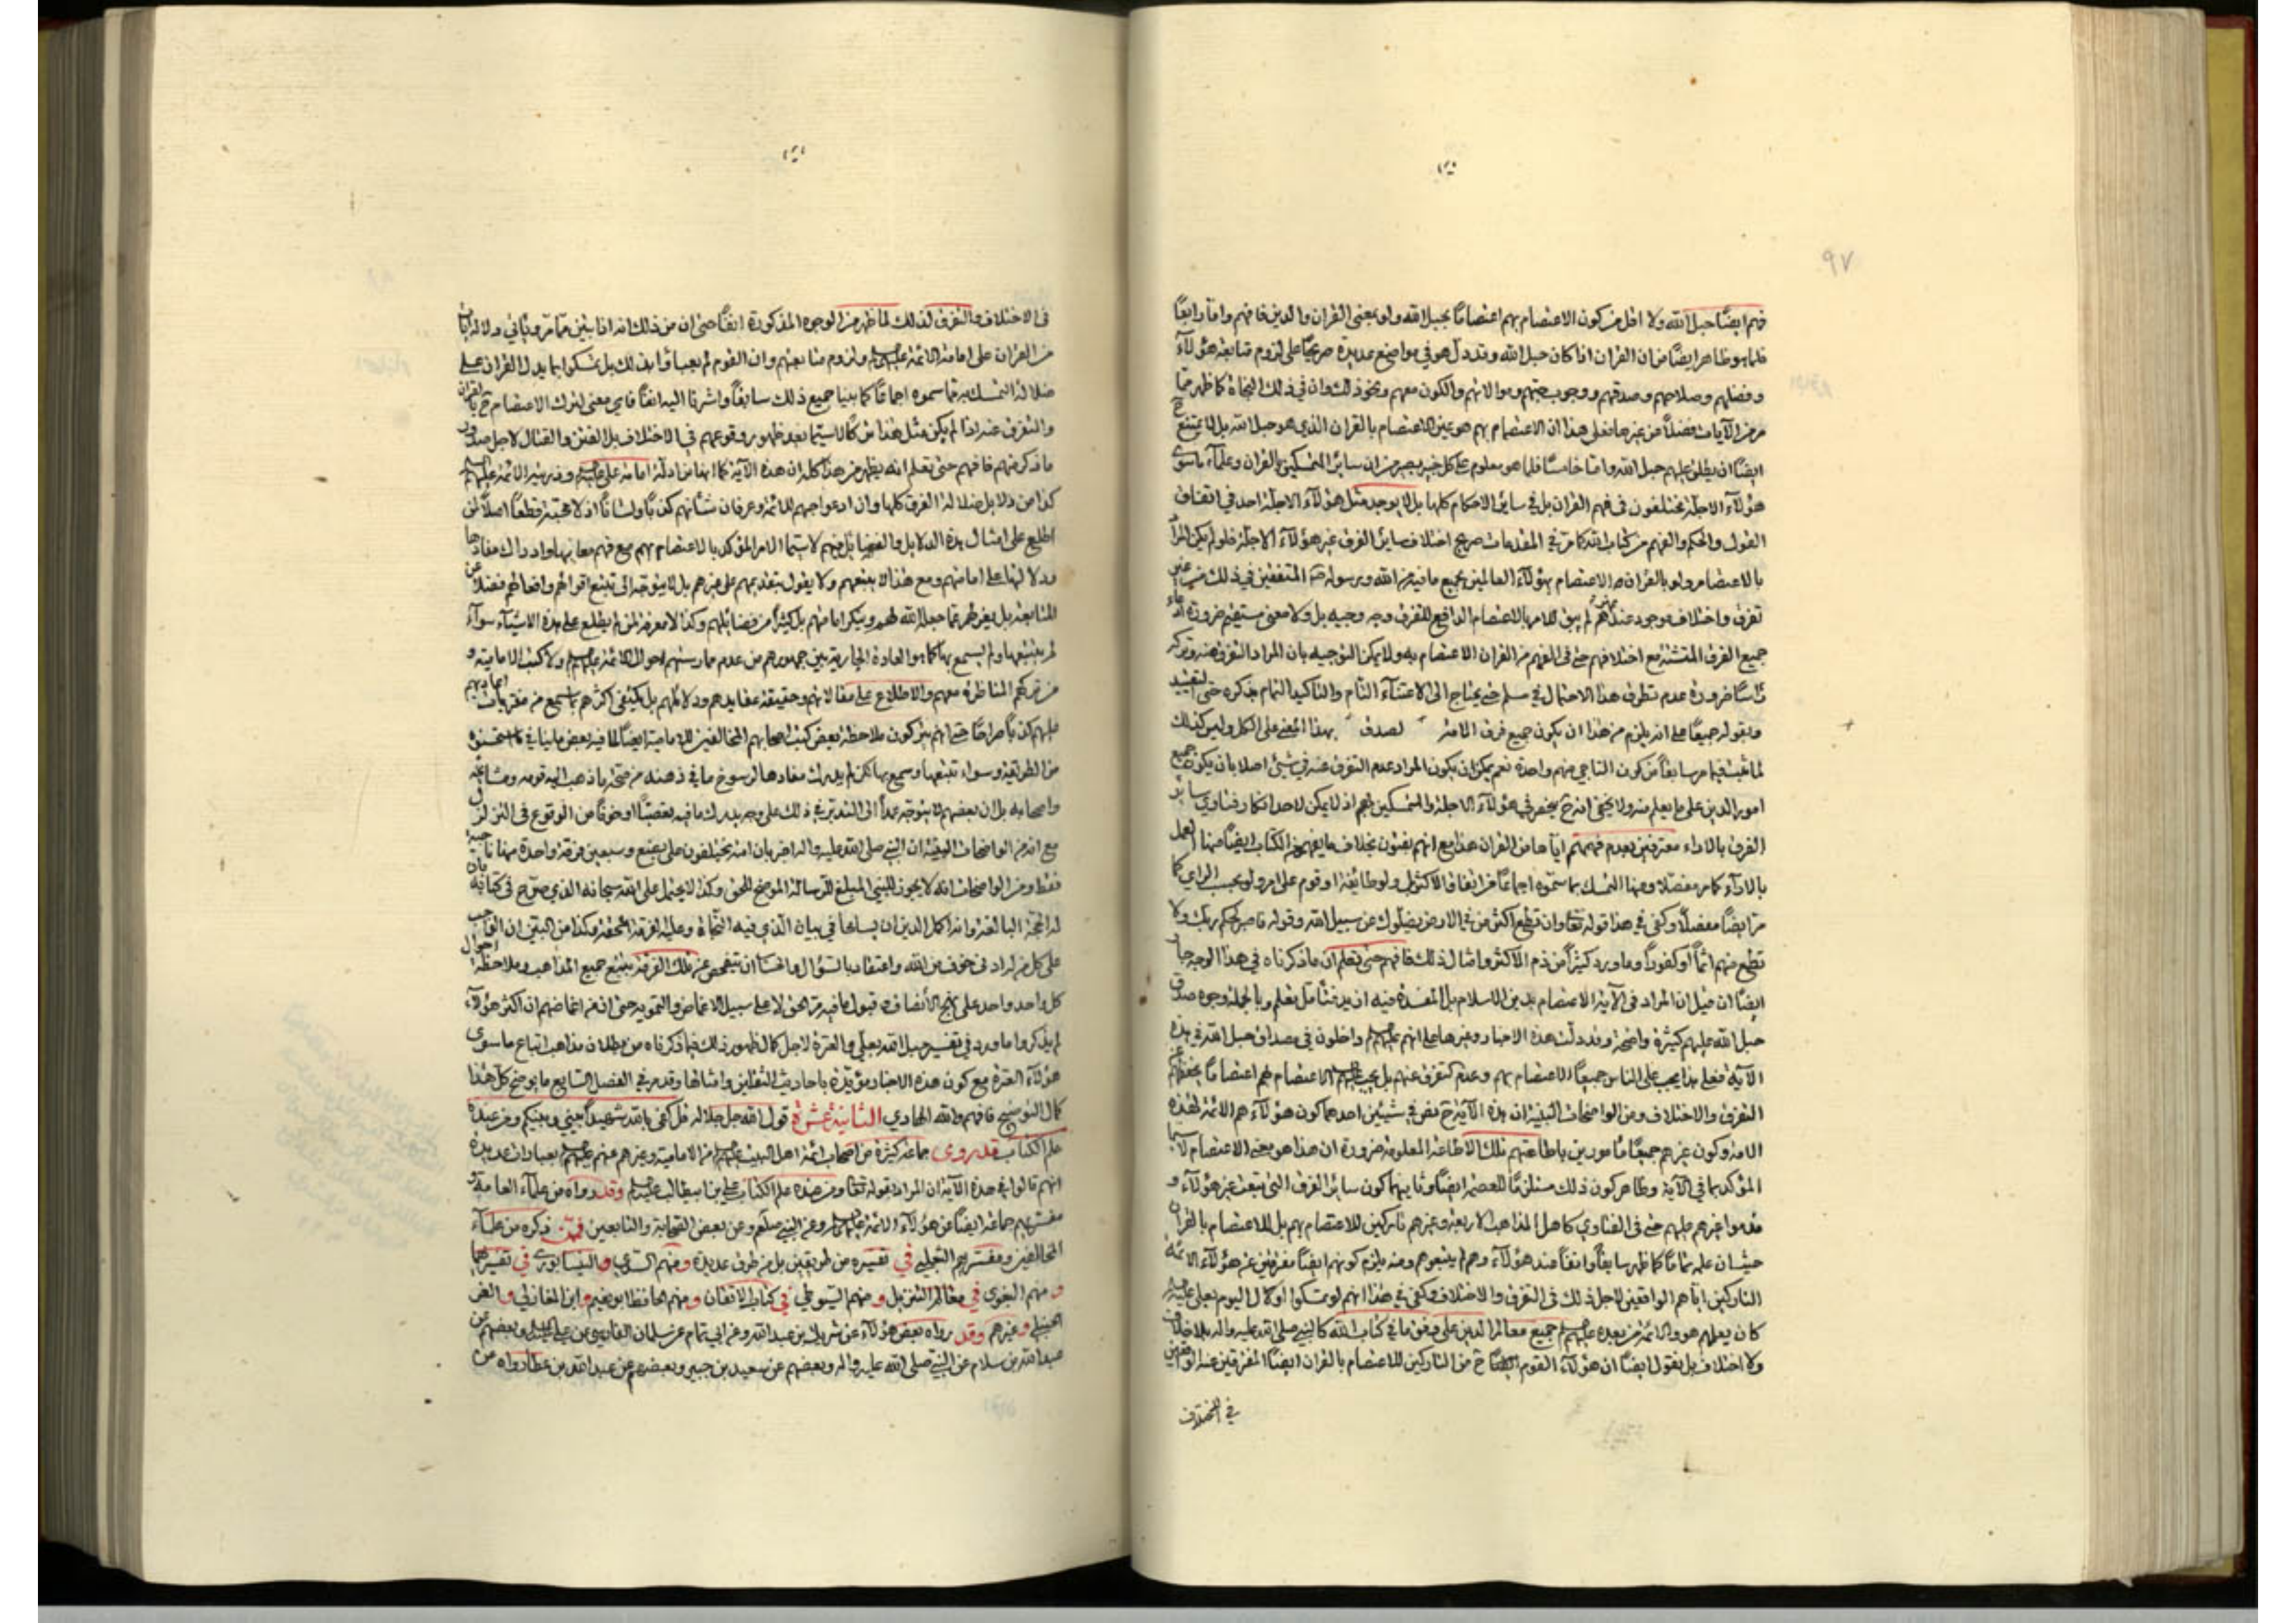 ٩٧
فهم ايضًا حبل الله ولا اقل من كون الاعتصام بهم اعتصامًا بحبل الله ولو بمعنى القران والدين فافهم واما رابعًا
فلما هو ظاهر ايضًا من ان القران اذا كان حبل الله وقد دل هو في مواضع عديدة صريحًا على لزوم متابعة هؤلاء
وفضلهم وصلاحهم وصدقهم ووجوب حبهم وموالاتهم والكون معهم ونحو ذلك وان في ذلك النجاة كما ظهر مما
مر من الآيات فضلاً عن غيرها فعلى هذا ان الاعتصام بهم هو عين الاعتصام بالقران الذي هو حبل الله بل لا يمتنع ح
ايضًا ان يطلق عليهم حبل الله واما خامسًا فلما هو معلوم على كل خبير بصير من ان سائر المتمسكين بالقران وعلماء ما سوى
هؤلاء الاجلة مختلفون في فهم القران بل في سائر الاحكام كلها بل لا يوجد مثل هؤلاء الاجلة احد في اتفاق
القول والحكم والفهم من كتاب الله كما مر في المقدمات صريح اختلاف سائر الفرق غير هؤلاء الاجلة فلو لم يكن المراد
بالاعتصام ولو بالقران الاعتصام بهؤلاء العالمين بجميع ما فيه من الله ورسوله المتفقين في ذلك من غير
تفرق واختلاف موجود عند غيرهم لم يبق للامر بالاعتصام الدافع للتفرق وجه وجيه بل ولا معنى مستقيم ضرورة ادعاء
جميع الفرق المتشتتة مع اختلافهم حتى في الفهم من القران الاعتصام به ولا يمكن التوجيه بان المراد التفرق عنه وتركه
راسًا ضرورة عدم تطرق هذا الاحتمال في مسلم حتى يحتاج الى الاعتناء التام والتاكيد التمام بذكره حتى التقييد
بقوله جميعًا على انه يلزم من هذا ان يكون جميع فرق الامة لصدق بهذا المعنى على الكل وليس كذلك
لما ثبت فيما مر سابقًا من كون الناجي منهم واحدة نعم يمكن ان يكون المراد عدم التفرق عنه في شيء اصلا بان يكون جميع
امور الدين على ما يعلم منه ولا يخفى انه ح ينحصر في هؤلاء الاجلة والمتمسكين بهم اذ لا يمكن لاحد انكار فتاوى سائر
الفرق بالاراء معترفين بعدم فهمهم اياها من القران هذا مع انهم يفتون بخلاف ما يفهم من الكتاب ايضًا منها العمل
بالاراء كما مر مفصلا ومنها التمسك بما سموه اجماعًا من اتفاق الاكثر ولو طائفة او قوم على امر ولو بحسب الراي كما
مر ايضًا مفصلاً وكفى في هذا قوله تعالى وان تطع اكثر من في الارض يضلوك عن سبيل الله وقوله فاصبر لحكم ربك ولا
تطع منهم اثمًا أو كفورًا وما ورد كثيرًا من ذم الاكثر وامثال ذلك فافهم حتى تعلم ان ما ذكرناه في هذا الوجه جار
ايضًا ان قيل ان المراد في الآية الاعتصام بدين الاسلام بل المفسدة فيه ازيد فتأمل تعلم وبالجملة وجوه صدق
حبل الله عليهم كثيرة واضحة وقد دلت هذه الاخبار وغيرها على انهم عليهم السلام داخلون في مصداق حبل الله في هذه
الآية فعلى هذا يجب على الناس جميعًا الاعتصام بهم وعدم التفرق عنهم بل يجب الاعتصام بهم اعتصامًا يحفظهم عن
التفرق والاختلاف ومن الواضحات البينة ان هذه الآية ح نص في شيئين احدهما كون هؤلاء هم الائمة لهذه
الامة وكون غيرهم جميعًا مامورين باطاعتهم تلك الاطاعة المعلومة ضرورة ان هذا هو معنى الاعتصام لا سيما
المؤكد بما في الآية وظاهر كون ذلك مستلزمًا للعصمة ايضًا وثانيهما كون سائر الفرق التي تبعت غير هؤلاء و
قدموا غيرهم عليهم حتى في الفتاوى كاهل المذاهب الاربعة وغيرهم تاركين للاعتصام بهم بل للاعتصام بالقران
حيث ان علمه تمامًا كما ظهر سابقًا وانفًا عند هؤلاء وهم لم يتبعوهم ومنه يلزم كونهم ايضًا متفرقين عن هؤلاء الائمة
التاركين اياهم الواقعين لاجل ذلك في التفرق والاختلاف وكفى في هذا انهم لو تمسكوا اول الامر بعلي عليه السلام
كان يعلمهم هو والائمة من بعده عليهم السلام جميع معالم الدين على وفق ما في كتاب الله كالنبي صلى الله عليه واله بلا خلاف
ولا اختلاف بل نقول ايضًا ان هؤلاء القوم ايضًا ح من التاركين للاعتصام بالقران ايضًا المتفرقين عنه الواقعين
في الاختلاف
في الاختلاف والتفرق لذلك لما ظهر من الوجوه المذكورة انفًا حتى ان من ذلك انه اذا تبين مما مر وياتي دلالة ايات
من القران على امامة الائمة عليهم السلام ولزوم متابعتهم وان القوم لم يعباوا بذلك بل تمسكوا بما يدل القران على
ضلالة التمسك به مما سموه اجماعًا كما بينا جميع ذلك سابقًا واشرنا اليه انفًا فاي معنى لترك الاعتصام ح بالقران
والتفرق عنه اذا لم يكن مثل هذا من كل لا سيما بعد ظهور وقوعهم في الاختلاف بل الفتن والقتال لاجل صدور
ما ذكر منهم فافهم حتى تعلم انه يظهر من هذا كله ان هذه الآية كما انها من ادلة امامة علي عليه السلام وذريته الائمة عليهم السلام
كذا من دلايل ضلالة الفرق كلها وان ادعوا حبهم للائمة وعرفان شأنهم كذبًا ولسانًا اذ لا محبة قطعًا اصلاً لمن
اطلع على امثال هذه الدلايل والفضايل فيهم لا سيما الامر المؤكد بالاعتصام بهم مع فهم معانيها وادراك مفادها
ودلالتها على امامتهم ومع هذا لا يتبعهم ولا يقول بتقدمهم على غيرهم بل لا يتوجه الى تتبع اقوالهم وافعالهم فضلا عن
المتابعة بل يغيرهم عما جعله الله لهم وينكر امامتهم بل كثيرًا من فضائلهم وكذا لا معرفة لمن لم يطلع على هذه الاشياء سواء
لم يتتبعها ولم يسمع بها كما هو العادة الجارية بين جمهورهم من عدم ممارستهم احوال الائمة عليهم السلام ولا كتب الامامية و
من تركهم المناظرة معهم والاطلاع على مقالاتهم وحقيقة عقايدهم ودلائلهم بل يكتفي اكثرهم بما سمع من مفتريات اعاديهم
عليهم كذبًا صراحًا حتى انهم يتركون ملاحظة بعض كتب اصحابهم المخالفين للامامية ايضًا لما فيه بعض ما ينافي ما استحسنوه
من الطريقة وسواء تتبعها وسمع بها لكن لم يدرك مفادها لرسوخ ما في ذهنه من صحة ما ذهب اليه قومه ومشايخه
واصحابه بل ان بعضهم لا يتوجه عمدًا الى التدبر في ذلك على وجه يدرك ما فيه تعصبًا او خوفًا من الوقوع في التزلزل
مع انه من الواضحات البينة ان النبي صلى الله عليه واله اخبر بان امته يختلفون على بضع وسبعين فرقة واحدة منها ناجية
فقط ومن الواضحات انه لا يجوز للنبي المبلغ للرسالة الموضح للحق وكذا لا يحتمل على الله سبحانه الذي صرح في كتابه بان
له الحجة البالغة وانه اكمل الدين ان يسامحا في بيان الذي فيه النجاة وعليه الفرقة المحقة وكذا من البين ان الواجب
على كل من اراد في خوف من الله واعتقاد بالسؤال والحساب ان يتفحص عن تلك الفرقة بتتبع جميع المذاهب وملاحظة احوال
كل واحد واحد على نهج الأنصاف وقبول ما فيه من الحق لا على سبيل الاغماض والتمويه حتى انه من اغماضهم ان اكثر هؤلاء
لم يذكروا ما ورد في تفسير حبل الله بعلي والعترة لاجل كمال ظهور ذلك فيما ذكرناه من بطلان مذاهب اتباع ما سوى
هؤلاء العترة مع كون هذه الاخبار مؤيدة باحاديث الثقلين وامثالها وقد مر في الفصل السابع ما يوضح كل هذا
كمال التوضيح فافهم والله الهادي الثانية عشرة قول الله جل جلاله قل كفى بالله شهيدًا بيني وبينكم ومن عنده
علم الكتاب قد روى جماعة كثيرة من اصحاب ائمة اهل البيت عليهم السلام من الامامية وغيرهم عنهم عليهم السلام بعبارات عديدة
انهم قالوا في هذه الآية ان المراد بقوله تعالى ومن عنده علم الكتاب علي بن ابيطالب عليه السلام وقد رواه من علماء العامة و
مفسريهم جماعة ايضًا عن هؤلاء الائمة عليهم السلام وعن النبي صلعم وعن بعض الصحابة والتابعين فممن ذكره من علماء
المخالفين ومفسريهم الثعلبي في تفسيره من طريقين بل من طرق عديدة ومنهم السدي والنيسابوري في تفسيرهما
ومنهم البغوي في معالم التنزيل ومنهم السيوطي في كتاب الاتقان ومنهم الحافظ ابو نعيم وابن المغازلي والغر
الحنبلي وغيرهم وقد رواه بعض هؤلاء عن شريك بن عبد الله وعن ابي تمام عن سلمان الفارسي عن علي عليه السلام وبعضهم عن
عبد الله بن سلام عن النبي صلى الله عليه واله وبعضهم عن سعيد بن جبير وبعضهم عن عبد الله بن عطا رواه عن